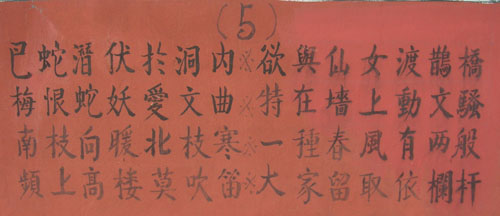 (5)
巳蛇潛伏於洞内※欲與仙女渡鵲橋
梅恨蛇妖愛文曲※特在墻上動文騷
南枝向暖北枝寒※一種春風有两般
頻上高楼莫吹笛※大家留取依欄杆